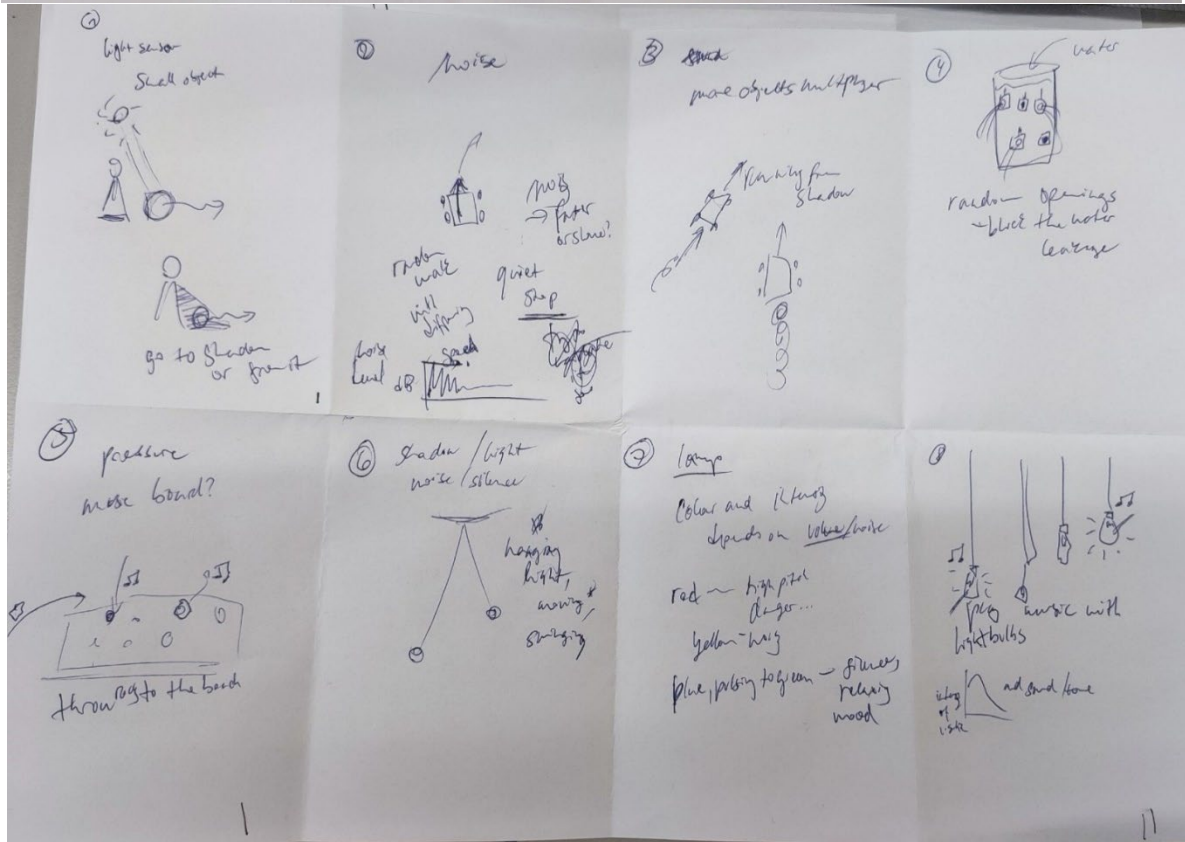 1
light sensor
small object
go to shadow
or from it
2
noise
noisy
→ faster
or slower?
random
walk
with
differing
speed
quiet
stop
noise
level
dB
3
more objects multiplayer
running from
shadow
4
water
random openings
→ block the water
leakage
5
pressure
music board?
throwing to the board
6
shadow / light
noise / silence
hanging
light,
moving,
swinging
7
lamp
Color and intensity
depends on volume/noise
red — high pitch
danger...
yellow - noisy
blue, pulsing to green — silence,
relaxing
mood
8
play music with
lightbulbs
intensity
of
light
and sound/tone